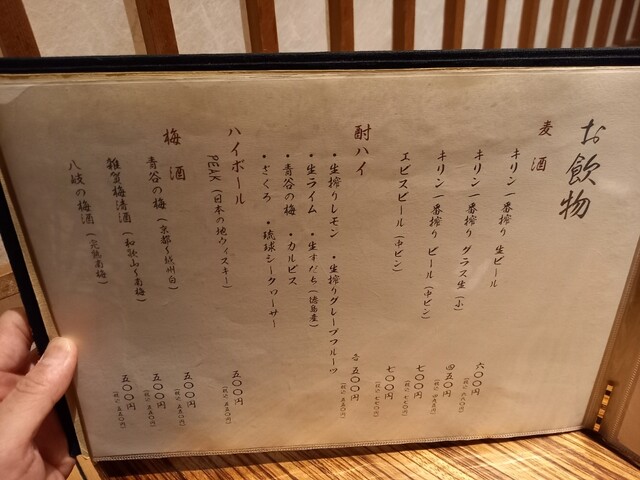 お飲物
麦酒
キリン一番搾り 生ビール 六〇〇円
(税込 六六〇円)
キリン一番搾り グラス生(小) 四五〇円
(税込 四九五円)
キリン一番搾り ビール(中ビン) 七〇〇円
(税込 七七〇円)
エビスビール(中ビン) 七〇〇円
(税込 七七〇円)
酎ハイ 各 五〇〇円
(税込 五五〇円)
・生搾りレモン ・生搾りグレープフルーツ
・生ライム ・生すだち(徳島産)
・青谷の梅 ・カルピス
・ざくろ ・琉球シークワーサー
ハイボール 五〇〇円
(税込 五五〇円)
PEAK(日本の地ウィスキー)
梅酒
青谷の梅(京都〜城州白) 五〇〇円
(税込 五五〇円)
雑賀梅酒(和歌山〜南梅) 五〇〇円
(税込 五五〇円)
八岐の梅酒(完熟南梅) 五〇〇円
(税込 五五〇円)